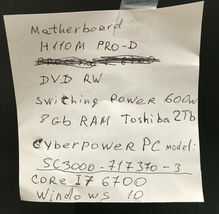 Motherboard
H110M PRO-D
DVD RW
Switching power 600w
8Gb RAM Toshiba 2Tb
Cyberpower PC model:
SC3000-717370-3
Core I7 6700
Windows 10